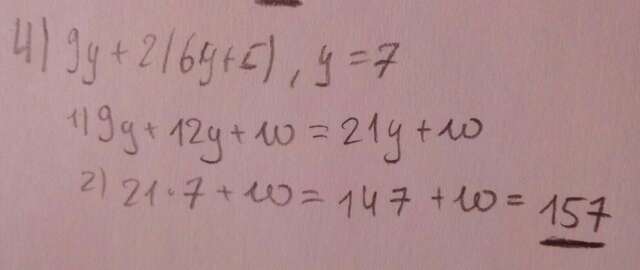 4) 9y + 2(6y+5), y = 7
1) 9y + 12y + 10 = 21y + 10
2) 21·7 + 10 = 147 + 10 = 157